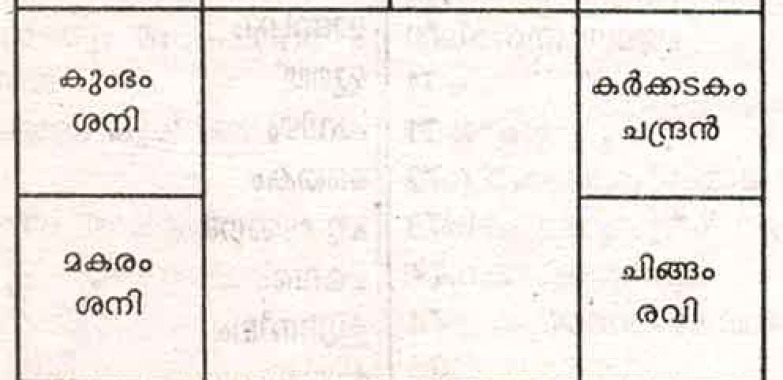 കുംഭം
ശനി
കർക്കടകം
ചന്ദ്രൻ
മകരം
ശനി
ചിങ്ങം
രവി